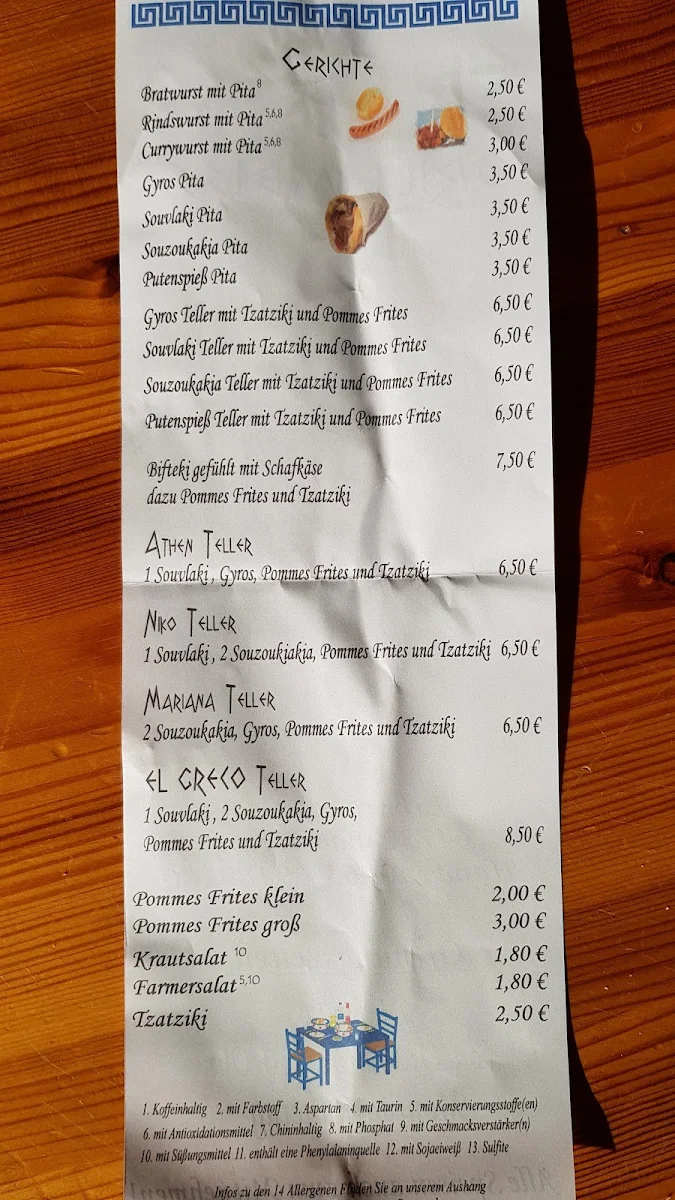 GERICHTE
Bratwurst mit Pita 8 2,50 €
Rindswurst mit Pita 5,6,8 2,50 €
Currywurst mit Pita 5,6,8 3,00 €
Gyros Pita 3,50 €
Souvlaki Pita 3,50 €
Souzoukakia Pita 3,50 €
Putenspieß Pita 3,50 €
Gyros Teller mit Tzatziki und Pommes Frites 6,50 €
Souvlaki Teller mit Tzatziki und Pommes Frites 6,50 €
Souzoukakia Teller mit Tzatziki und Pommes Frites 6,50 €
Putenspieß Teller mit Tzatziki und Pommes Frites 6,50 €
Bifteki gefühlt mit Schafkäse 7,50 €
dazu Pommes Frites und Tzatziki
ATHEN TELLER
1 Souvlaki , Gyros, Pommes Frites und Tzatziki 6,50 €
NIKO TELLER
1 Souvlaki , 2 Souzoukiakia, Pommes Frites und Tzatziki 6,50 €
MARIANA TELLER
2 Souzoukakia, Gyros, Pommes Frites und Tzatziki 6,50 €
EL GRECO TELLER
1 Souvlaki , 2 Souzoukakia, Gyros,
Pommes Frites und Tzatziki 8,50 €
Pommes Frites klein 2,00 €
Pommes Frites groß 3,00 €
Krautsalat 10 1,80 €
Farmersalat 5,10 1,80 €
Tzatziki 2,50 €
1. Koffeinhaltig 2. mit Farbstoff 3. Aspartan 4. mit Taurin 5. mit Konservierungsstoffe(en)
6. mit Antioxidationsmittel 7. Chininhaltig 8. mit Phosphat 9. mit Geschmacksverstärker(n)
10. mit Süßungsmittel 11. enthält eine Phenylalaninquelle 12. mit Sojaeiweiß 13. Sulfite
Infos zu den 14 Allergenen Finden Sie an unserem Aushang